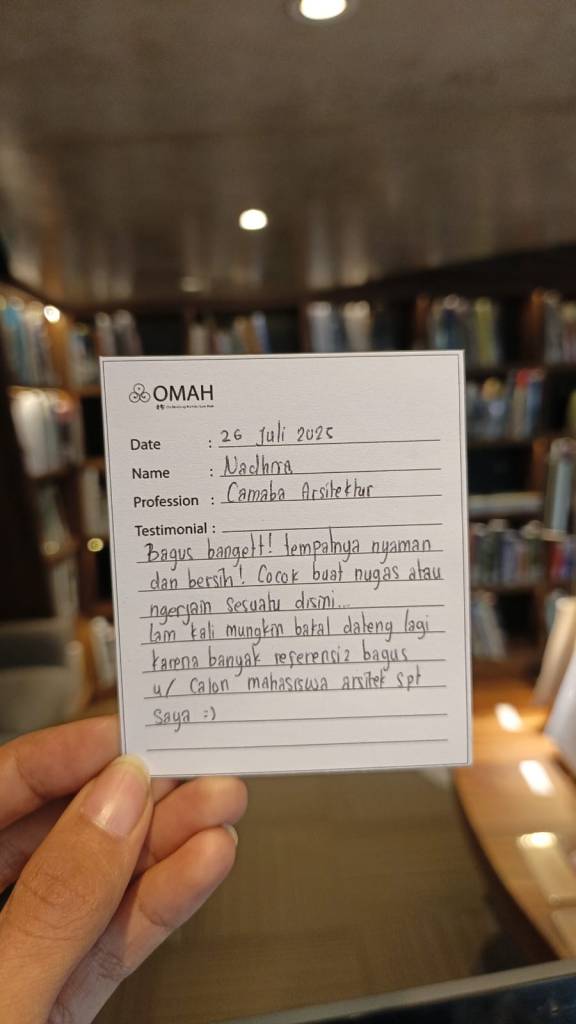 OMAH
Date : 26 Juli 2025
Name : Nadhra
Profession : Camaba Arsitektur
Testimonial :
Bagus bangett! tempatnya nyaman
dan bersih! Cocok buat nugas atau
ngerjain sesuatu disini...
lam kali mungkin bakal dateng lagi
karena banyak referensi2 bagus
u/ calon mahasiswa arsitek spt
saya :)